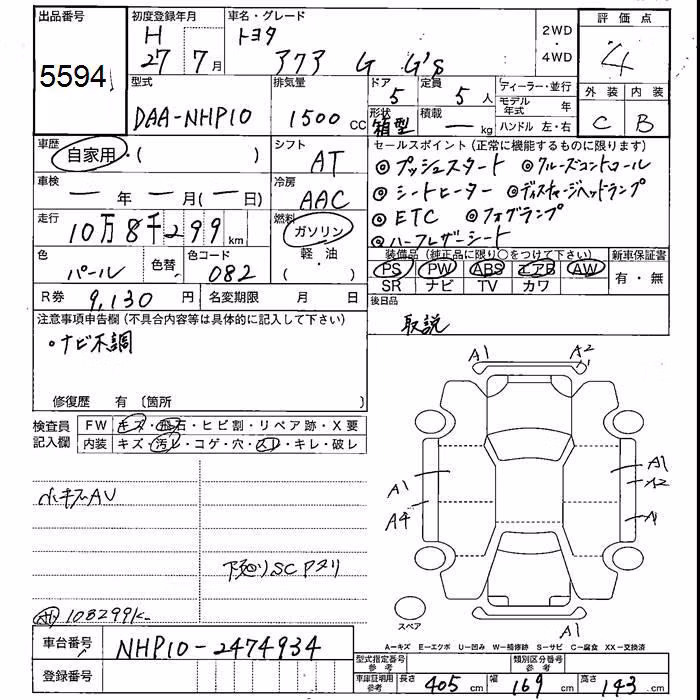 出品番号 初度登録年月 車名・グレード 評価点
5594 H 27年 7月 トヨタ アクア G G's 2WD・4WD 4
型式 排気量 ドア 定員 ディーラー・並行 外装 内装
DAA-NHP10 1500 CC 5 5人 モデル年式 年 C B
形状 箱型 積載 ー kg ハンドル 左・右
車歴 自家用・( ) シフト AT
セールスポイント (正常に機能するものに限ります)
◎プッシュスタート ◎クルーズコントロール
◎シートヒーター ◎ディスチャージヘッドランプ
◎ETC ◎フォグランプ
◎ハーフレザーシート
車検 ー年ー月(ー日) 冷房 AAC
走行 10万8千299km 燃料 ガソリン
軽・油
( )
色 パール 色替 色コード 082
装備品 (純正品に限り○をつけて下さい) 新車保証書
PS PW ABS エアB AW 有・無
SR ナビ TV カワ
R券 9,130円 名変期限 月 日
後日品
取説
注意事項申告欄(不具合内容等は具体的に記入して下さい)
・ナビ不調
修復歴 有 〔箇所 〕
検査員記入欄
FW キズ・飛石・ヒビ割・リペア跡・X要
内装 キズ・汚レ・コゲ・穴・スレ・キレ・破レ
小キズAU
下廻りSCアリ
108299k-
A1 A2
A1 A1
A2
A4 A1
A1
スペア
A―キズ E―エクボ U―凹み W―補修跡 S―サビ C―腐食 XX―交換済
車台番号 NHP10-2474934
登録番号
型式指定番号 参考 類別区分番号 参考
車庫証明用 参考 長さ 405cm 幅 169cm 高さ 143cm